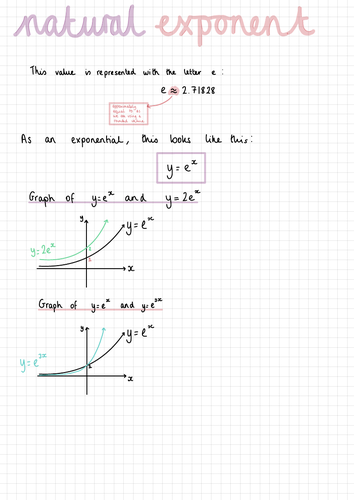 natural exponent
This value is represented with the letter e:
e ≈ 2.71828
approximately
equal to as
we are using a
rounded value
As an exponential, this looks like this:
y = eˣ
Graph of y=eˣ and y = 2eˣ
y
y=eˣ
y=2eˣ
x
Graph of y=eˣ and y=e²ˣ
y
y=eˣ
y=e²ˣ
x